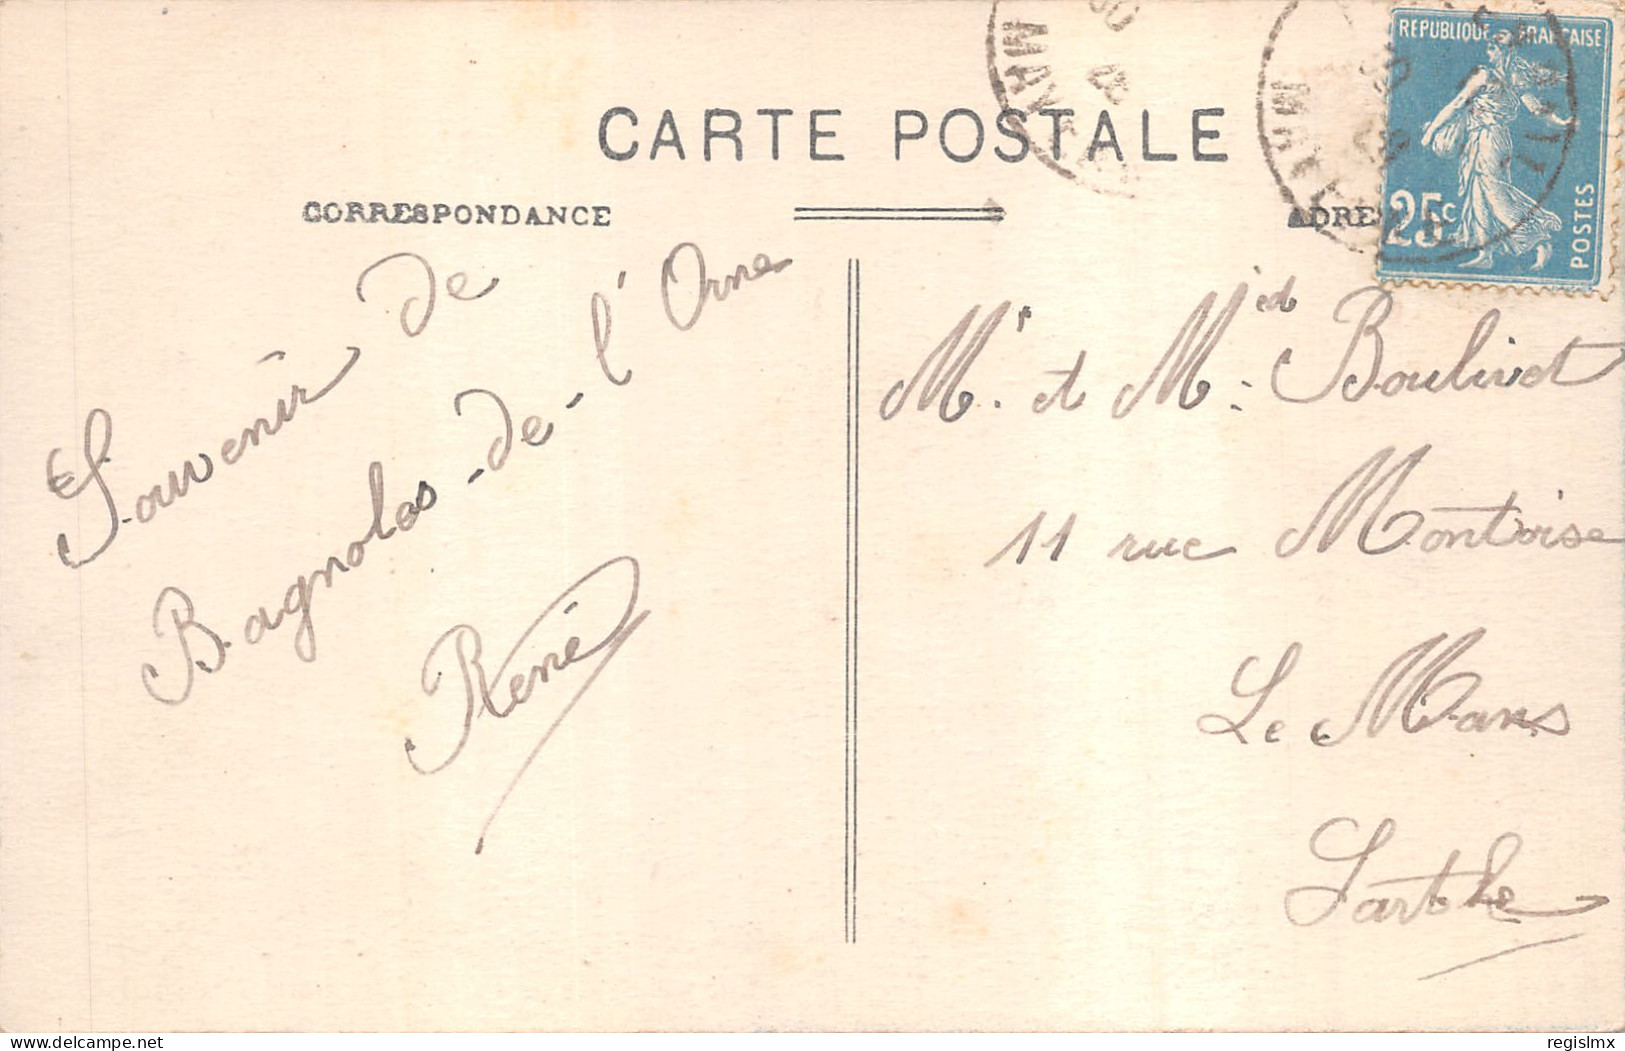 CARTE POSTALE
CORRESPONDANCE
RÉPUBLIQUE FRANÇAISE
25c
POSTES
Souvenir de
Bagnoles-de-l'Orne
René
Mr. et Med. Boulivet
11 rue Montoise
Le Mans
Sarthe
delcampe.net
regislmx